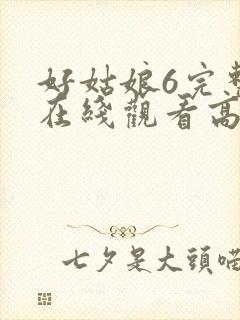 好姑娘6完整
在綫觀看高
七夕是大頭喵